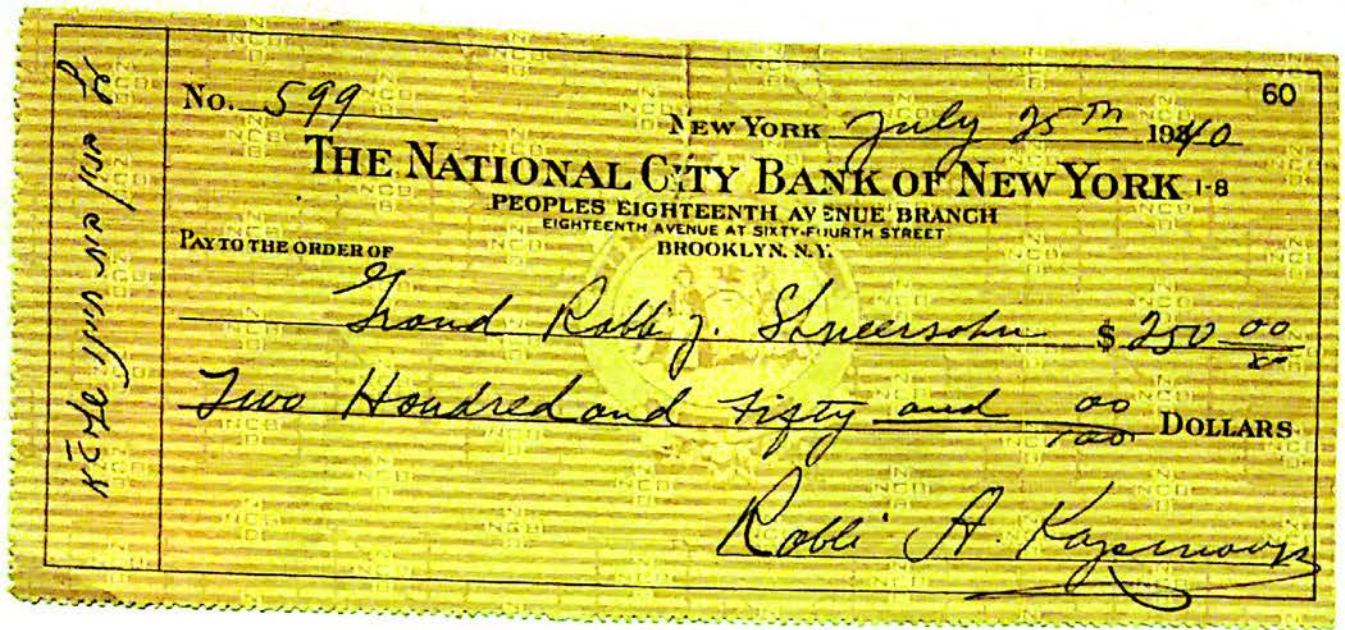 60
No. 599
NEW YORK July 25th 1940
THE NATIONAL CITY BANK OF NEW YORK 1-8
PEOPLES EIGHTEENTH AVENUE BRANCH
EIGHTEENTH AVENUE AT SIXTY-FOURTH STREET
BROOKLYN, N.Y.
PAY TO THE ORDER OF
Grand Rabbi J. Shneersohn $ 250 00
Two Hundred and Fifty and 00/100 DOLLARS
Rabbi A.